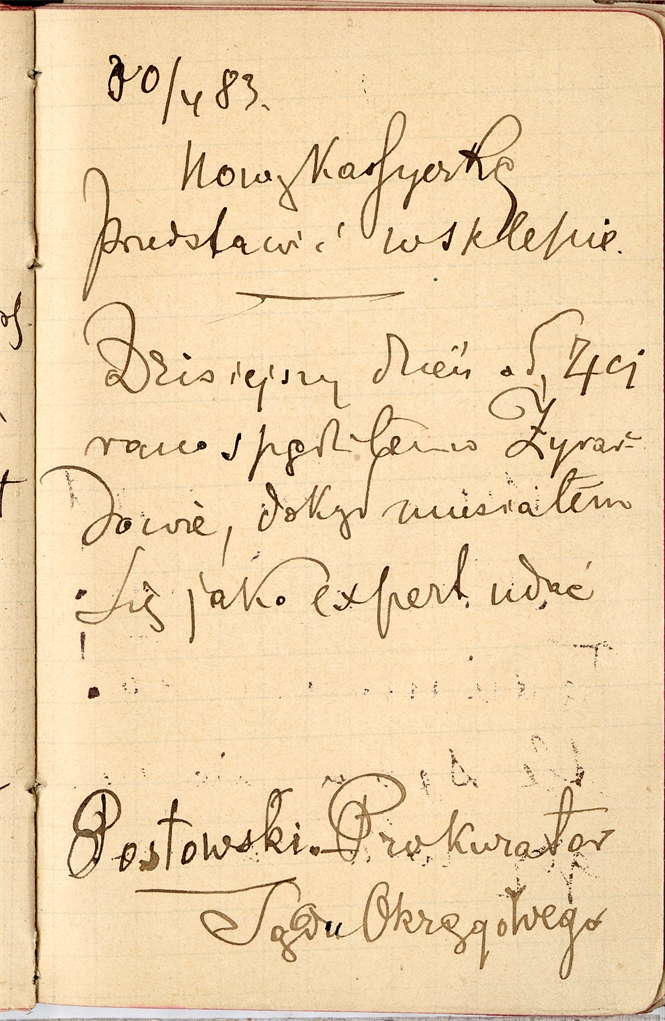 30/4 83.
Nową Kassyerkę
przedstawić w sklepie.
Dzisiejszy dzień od 7ej
rano spędziłem w Żyrar=
dowie, dokąd musiałem
się jako expert udać
Postowski. Prokurator
Sądu Okręgowego